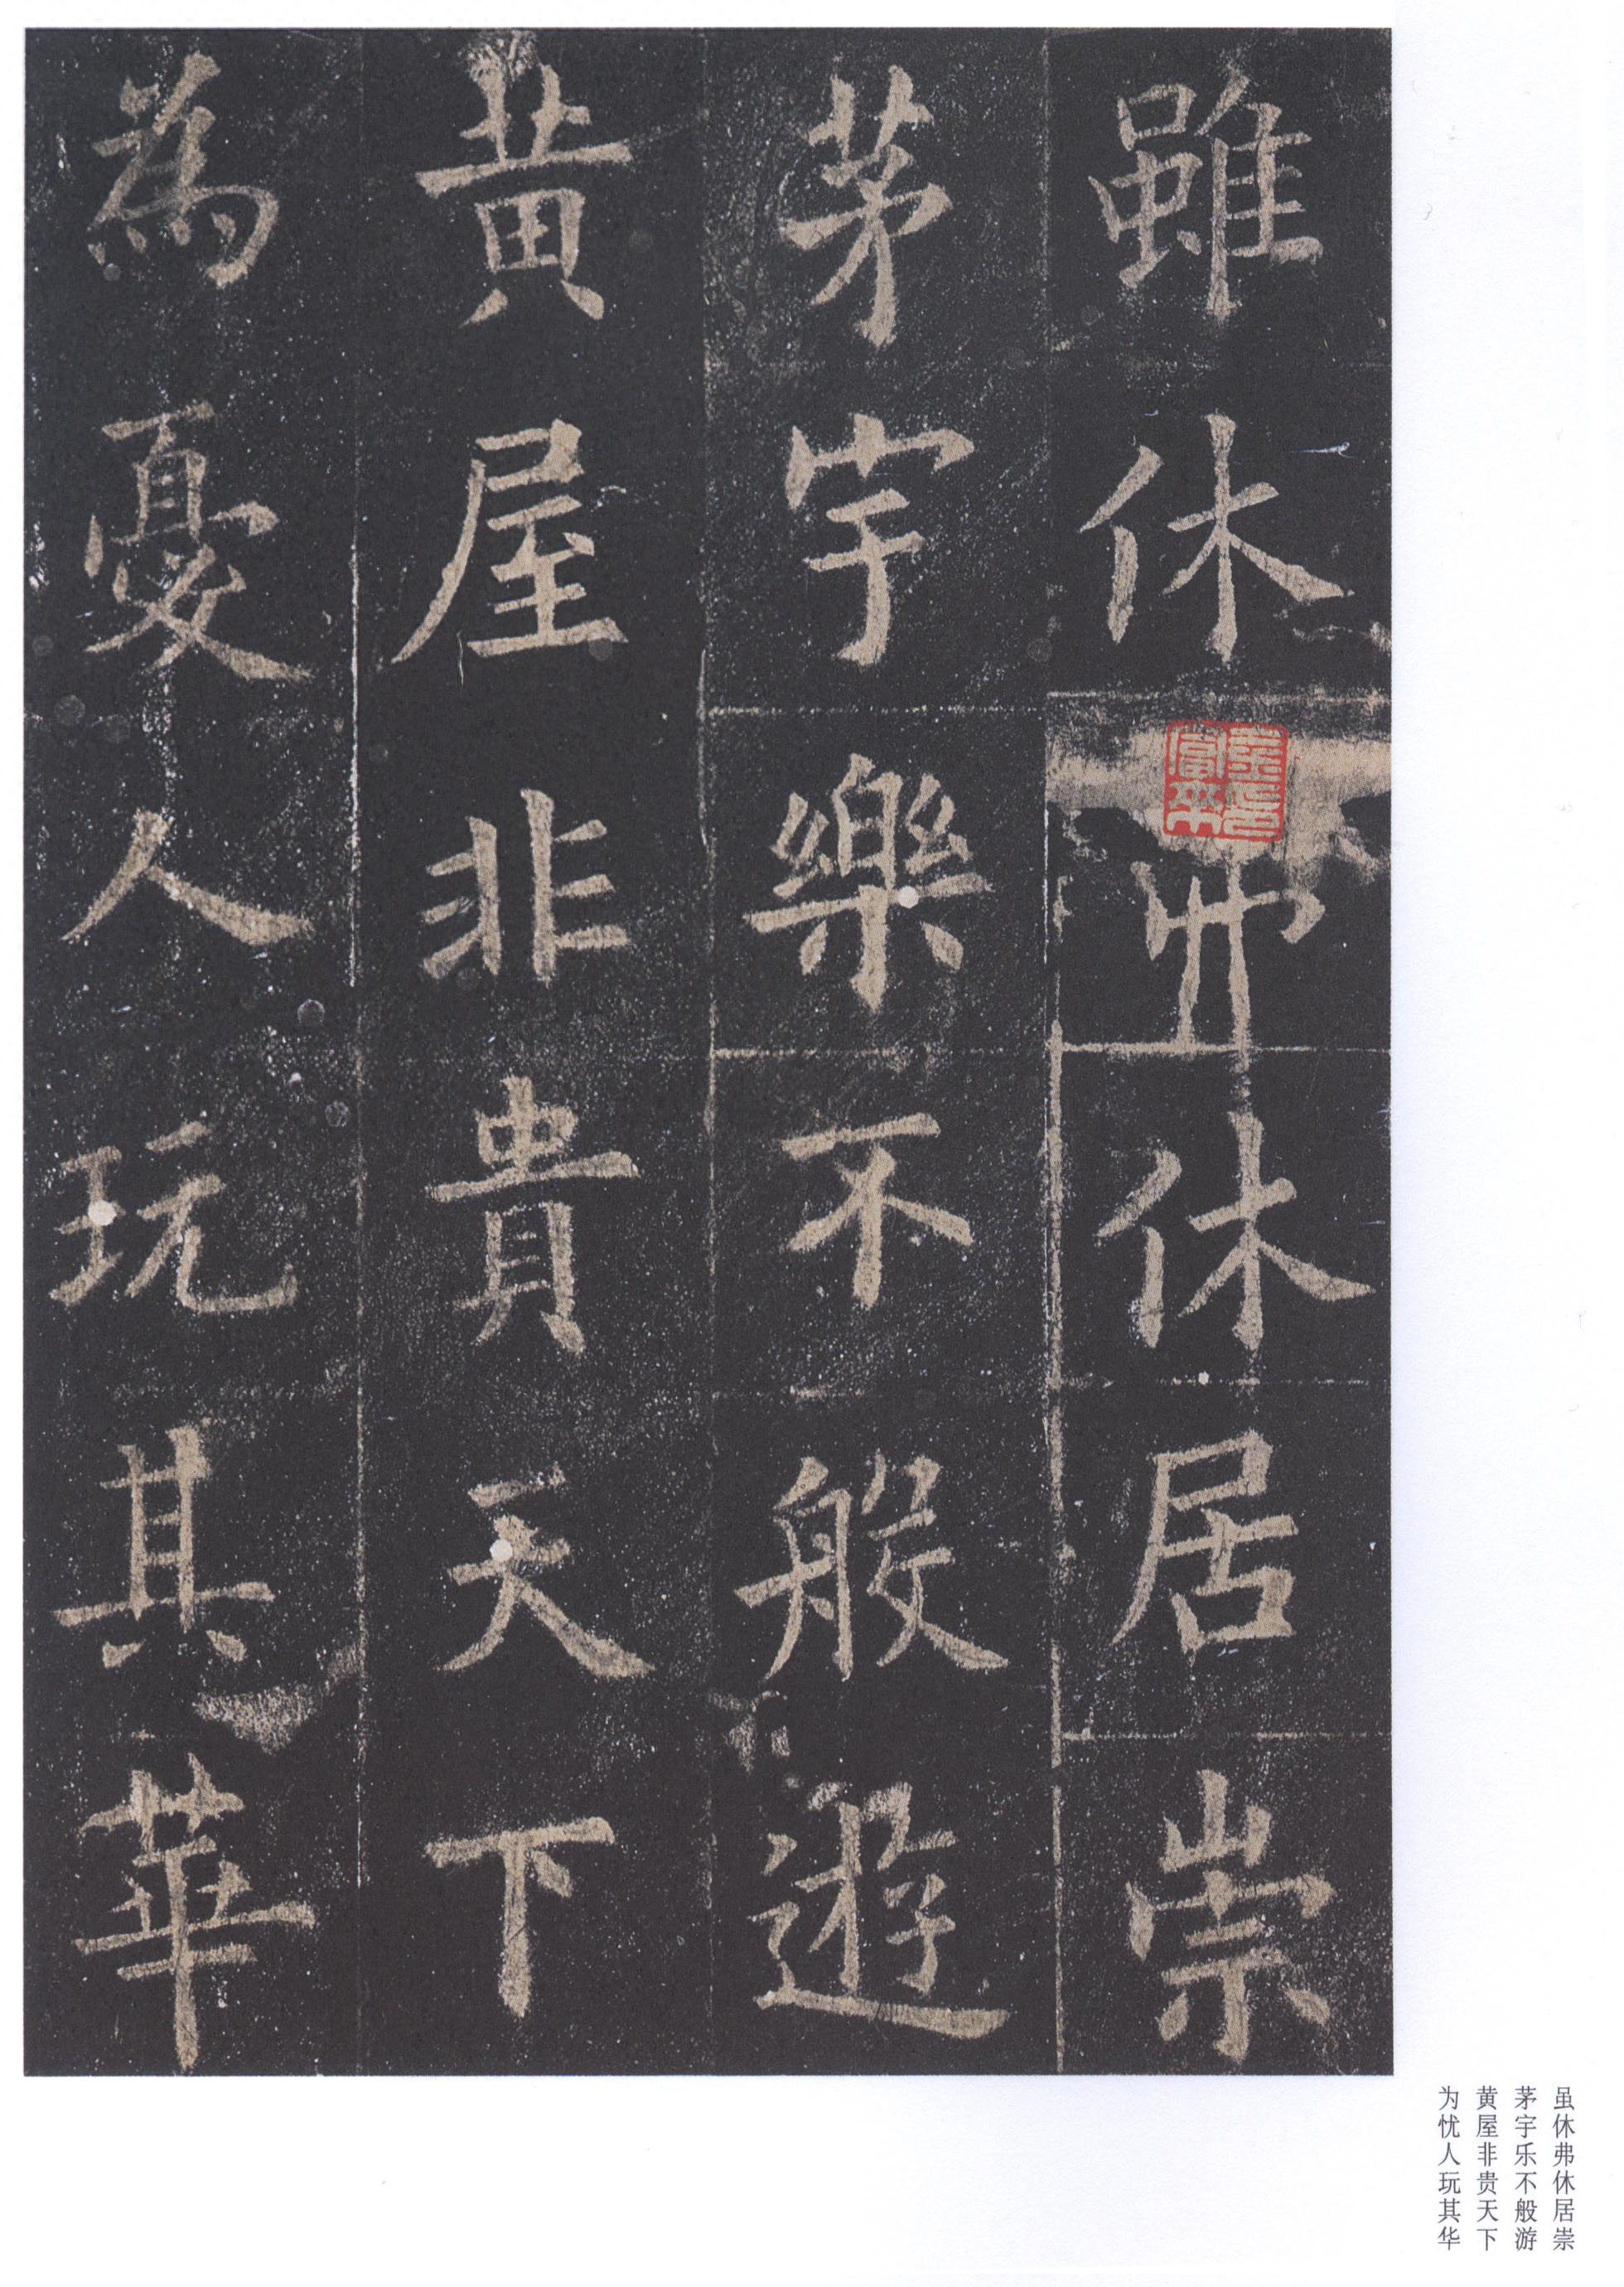 雖休弗休居崇
茅宇樂不般遊
黃屋非貴天下
為憂人玩其華
虽休弗休居崇
茅宇乐不般游
黄屋非贵天下
为忧人玩其华